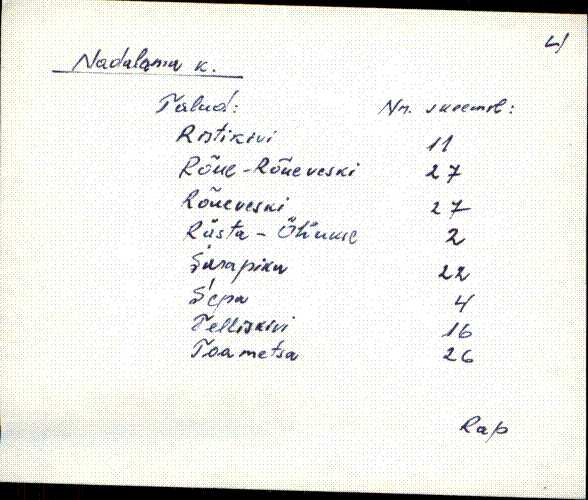 4)
Nadalama k.
Talud: Nr. skeemil:
Ristikivi 11
Rõue-Rõueveski 27
Rõueveski 27
Rästa - Õhume 2
Sarapiku 22
Sepa 4
Telliskivi 16
Toametsa 26
Rap